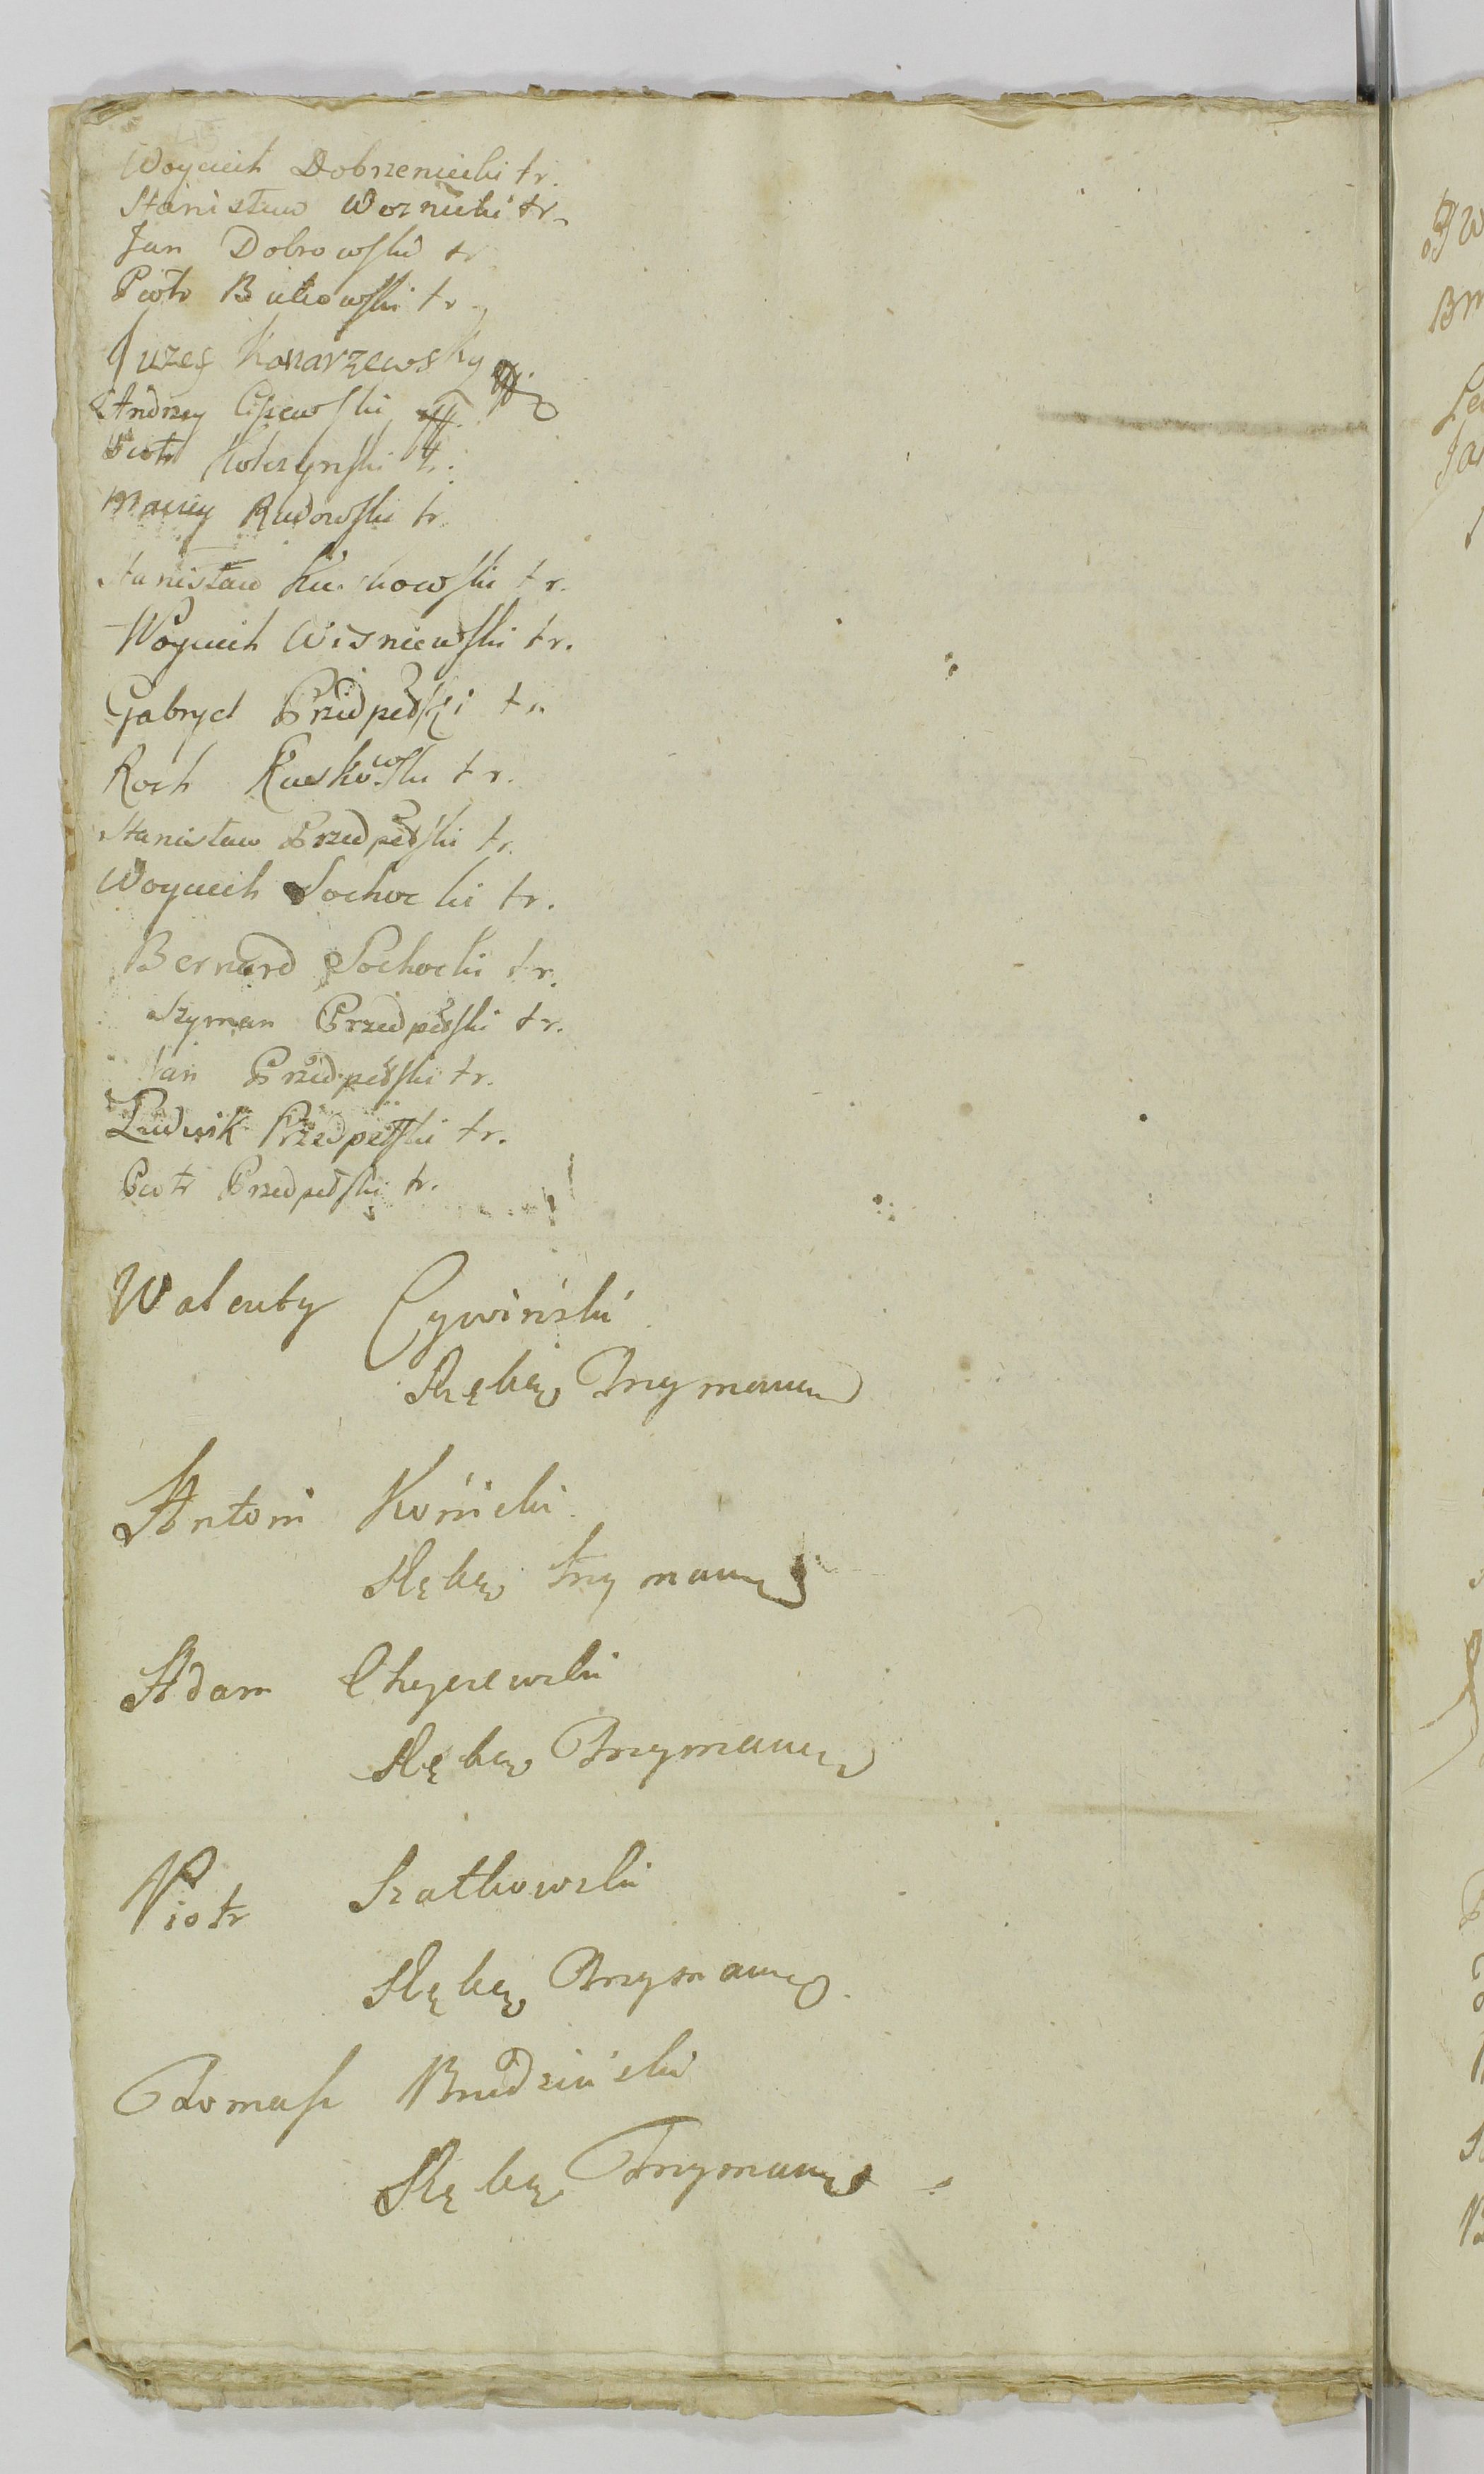 Woyciech Dobrzeniecki tr.
Stanisław Woznicki tr.
Jan Dobrowski tr
Piotr Bukowski tr.
Juzef Konarzewsky
Andrzey Cissewski
Piotr Kolczynski tr.
Maciey Rudowski tr
Stanisław tr.
Woyciech Wisniewski tr.
Gabryel Przedpełski tr.
Roch Ruskowski tr.
Stanisław Przedpełski tr.
Woyciech Sochocki tr.
Bernard Sochocki tr.
Szyman Przedpełski tr.
Jan Przedpełski tr.
Ludwik Przedpełski tr.
Piotr Przedpełski tr.
Walenty Cywiński
Rękę Trzymaną
Antoni Konicki
Rękę trzymaną
Adam Chyczewski
Rękę Trzymaną
Piotr Szatkowski
Rękę Trzymaną
Tomasz Brudziński
Rękę Trzymaną